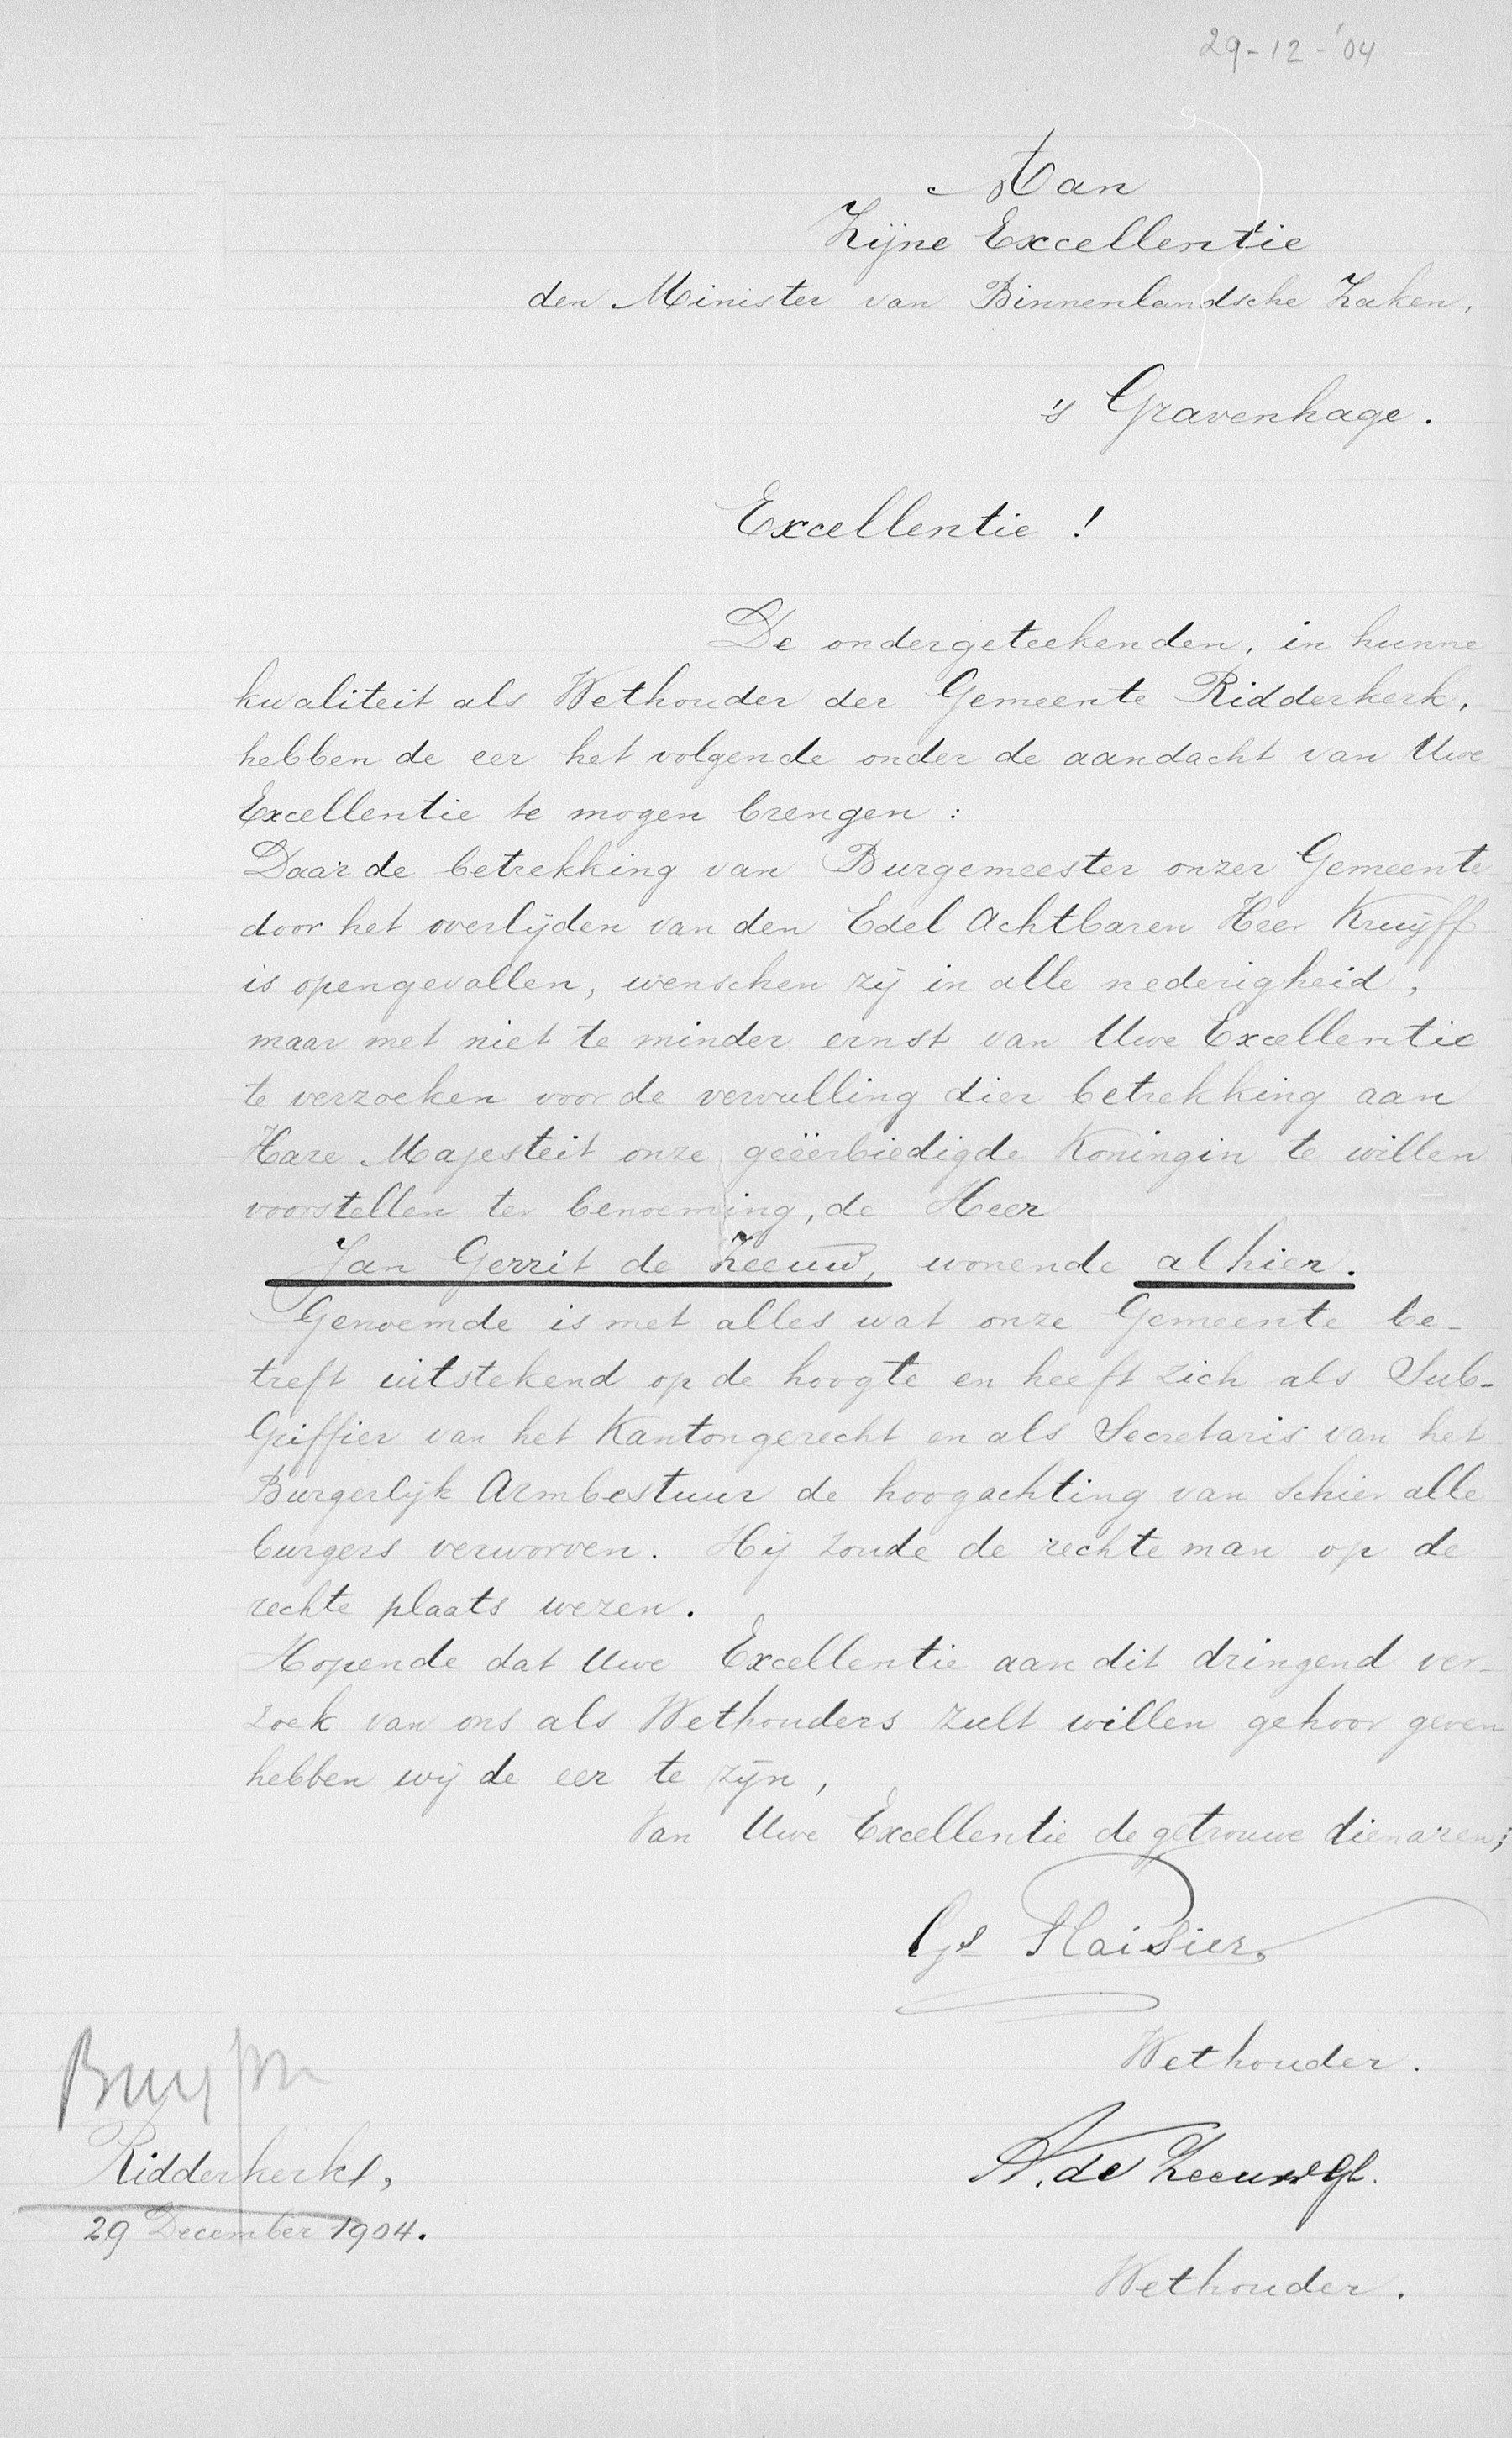 29-12-'04
Aan
Zijne Excellentie
den Minister van Binnenlandsche Zaken,
's Gravenhage.
Excellentie !
De ondergeteekenden, in hunne
kwaliteit als Wethouder der Gemeente Ridderkerk,
hebben de eer het volgende onder de aandacht van Uwe
Excellentie te mogen brengen :
Daar de betrekking van Burgemeester onzer Gemeente
door het overlijden van den Edel Achtbaren Heer Kruijff
is opengevallen, wenschen zij in alle nederigheid,
maar met niet te minder ernst van Uwe Excellentie
te verzoeken voor de vervulling dier betrekking aan
Hare Majesteit onze geëerbiedigde Koningin te willen
voorstellen ter benoeming, de Heer
Jan Gerrit de Zeeuw, wonende alhier.
Genoemde is met alles wat onze Gemeente be-
treft uitstekend op de hoogte en heeft zich als Sub-
Griffier van het Kantongerecht en als Secretaris van het
Burgerlijk Armbestuur de hoogachting van schier alle
burgers verworven. Hij zoude de rechte man op de
rechte plaats wezen.
Hopende dat Uwe Excellentie aan dit dringend ver-
zoek van ons als Wethouders zult willen gehoor geven
hebben wij de eer te zijn,
Van Uwe Excellentie de getrouwe dienaren;
Gs Plaisier
Wethouder.
Ridderkerk,
A. de Zeeuw Gz.
29 December 1904.
Wethouder.